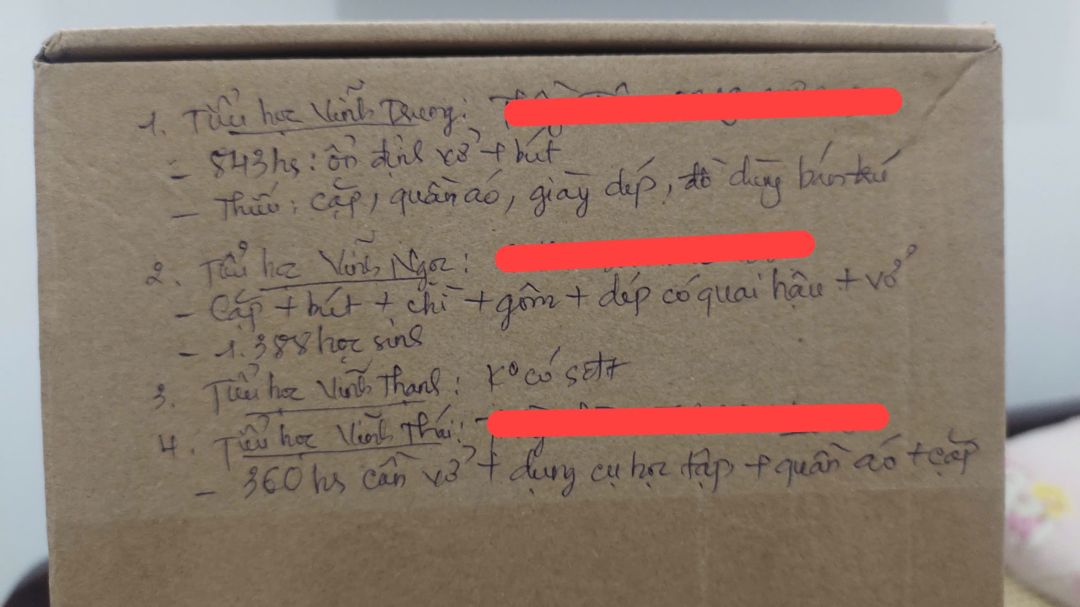 1. Tiểu học Vĩnh Trường: Thầy
- 843hs: ổn định vở + bút
- Thiếu: cặp, quần áo, giày dép, đồ dùng bán trú
2. Tiểu học Vĩnh Ngọc:
- Cặp + bút + chì + gôm + dép có quai hậu + vở
- 1.388 học sinh
3. Tiểu học Vĩnh Thạnh: K° có SĐT
4. Tiểu học Vĩnh Thái:
- 360 hs cần vở + dụng cụ học tập + quần áo + cặp